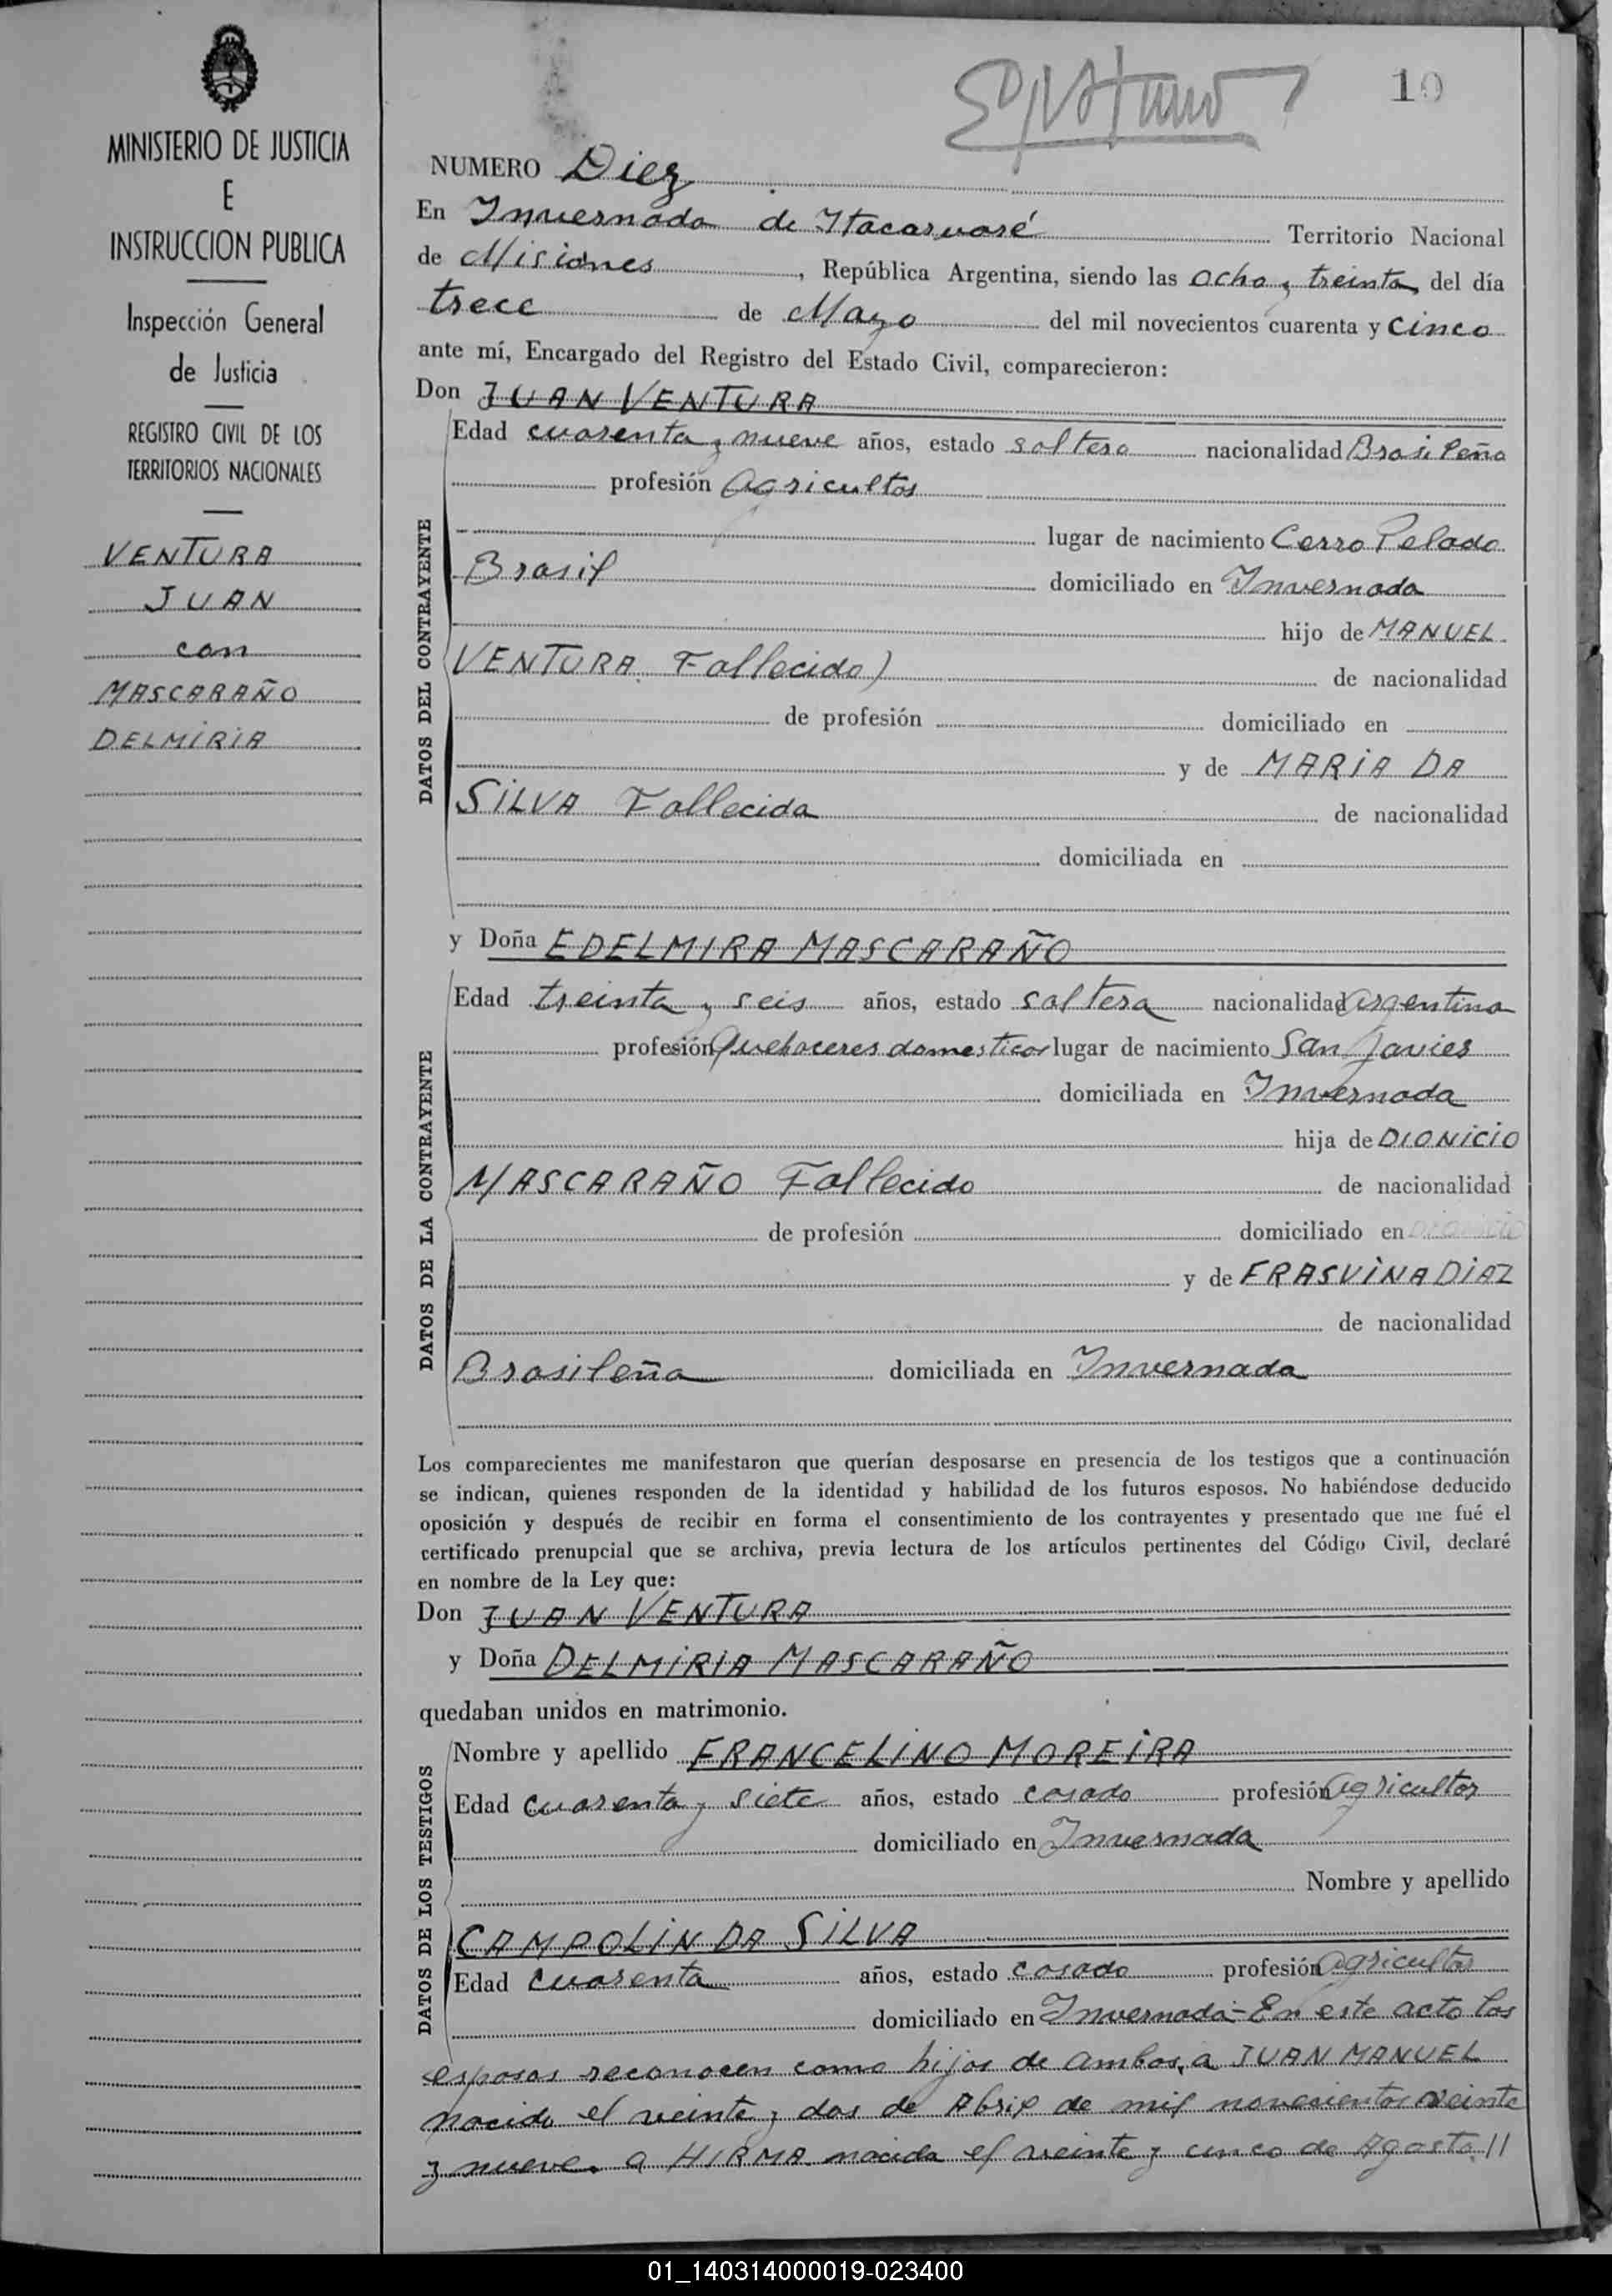 10
MINISTERIO DE JUSTICIA
E
INSTRUCCION PUBLICA
Inspección General
de Justicia
REGISTRO CIVIL DE LOS
TERRITORIOS NACIONALES
VENTURA
JUAN
con
MASCARAÑO
DELMIRIA
NUMERO Diez
En Invernada de Itacaruaré Territorio Nacional
de Misiones, República Argentina, siendo las ocho y treinta del día
trece de Mayo del mil novecientos cuarenta y cinco
ante mí, Encargado del Registro del Estado Civil, comparecieron:
Don JUAN VENTURA
DATOS DEL CONTRAYENTE
Edad cuarenta y nueve años, estado soltero nacionalidad Brasileña
profesión Agricultor
lugar de nacimiento Cerro Pelado
Brasil domiciliado en Invernada
hijo de MANUEL
VENTURA Fallecido) de nacionalidad
de profesión domiciliado en
y de MARIA DA
SILVA Fallecida de nacionalidad
domiciliada en
y Doña EDELMIRA MASCARAÑO
DATOS DE LA CONTRAYENTE
Edad treinta y seis años, estado soltera nacionalidad Argentina
profesión Quehaceres domesticos lugar de nacimiento San Javier
domiciliada en Invernada
hija de DIONICIO
MASCARAÑO Fallecido de nacionalidad
de profesión domiciliado en
y de FRASVINA DIAZ
de nacionalidad
Brasileña domiciliada en Invernada
Los comparecientes me manifestaron que querían desposarse en presencia de los testigos que a continuación
se indican, quienes responden de la identidad y habilidad de los futuros esposos. No habiéndose deducido
oposición y después de recibir en forma el consentimiento de los contrayentes y presentado que me fué el
certificado prenupcial que se archiva, previa lectura de los artículos pertinentes del Código Civil, declaré
en nombre de la Ley que:
Don JUAN VENTURA
y Doña DELMIRIA MASCARAÑO
quedaban unidos en matrimonio.
DATOS DE LOS TESTIGOS
Nombre y apellido FRANCELINO MOREIRA
Edad cuarenta y siete años, estado casado profesión Agricultor
domiciliado en Invernada
Nombre y apellido
CAMPOLIN DA SILVA
Edad cuarenta años, estado casado profesión Agricultor
domiciliado en Invernada - En este acto los
esposos reconocen como hijos de ambos, a JUAN MANUEL
nacido el veinte y dos de Abril de mil novecientos veinte
y nueve. a HIRMA nacida el veinte y cinco de Agosto //
01_140314000019-023400